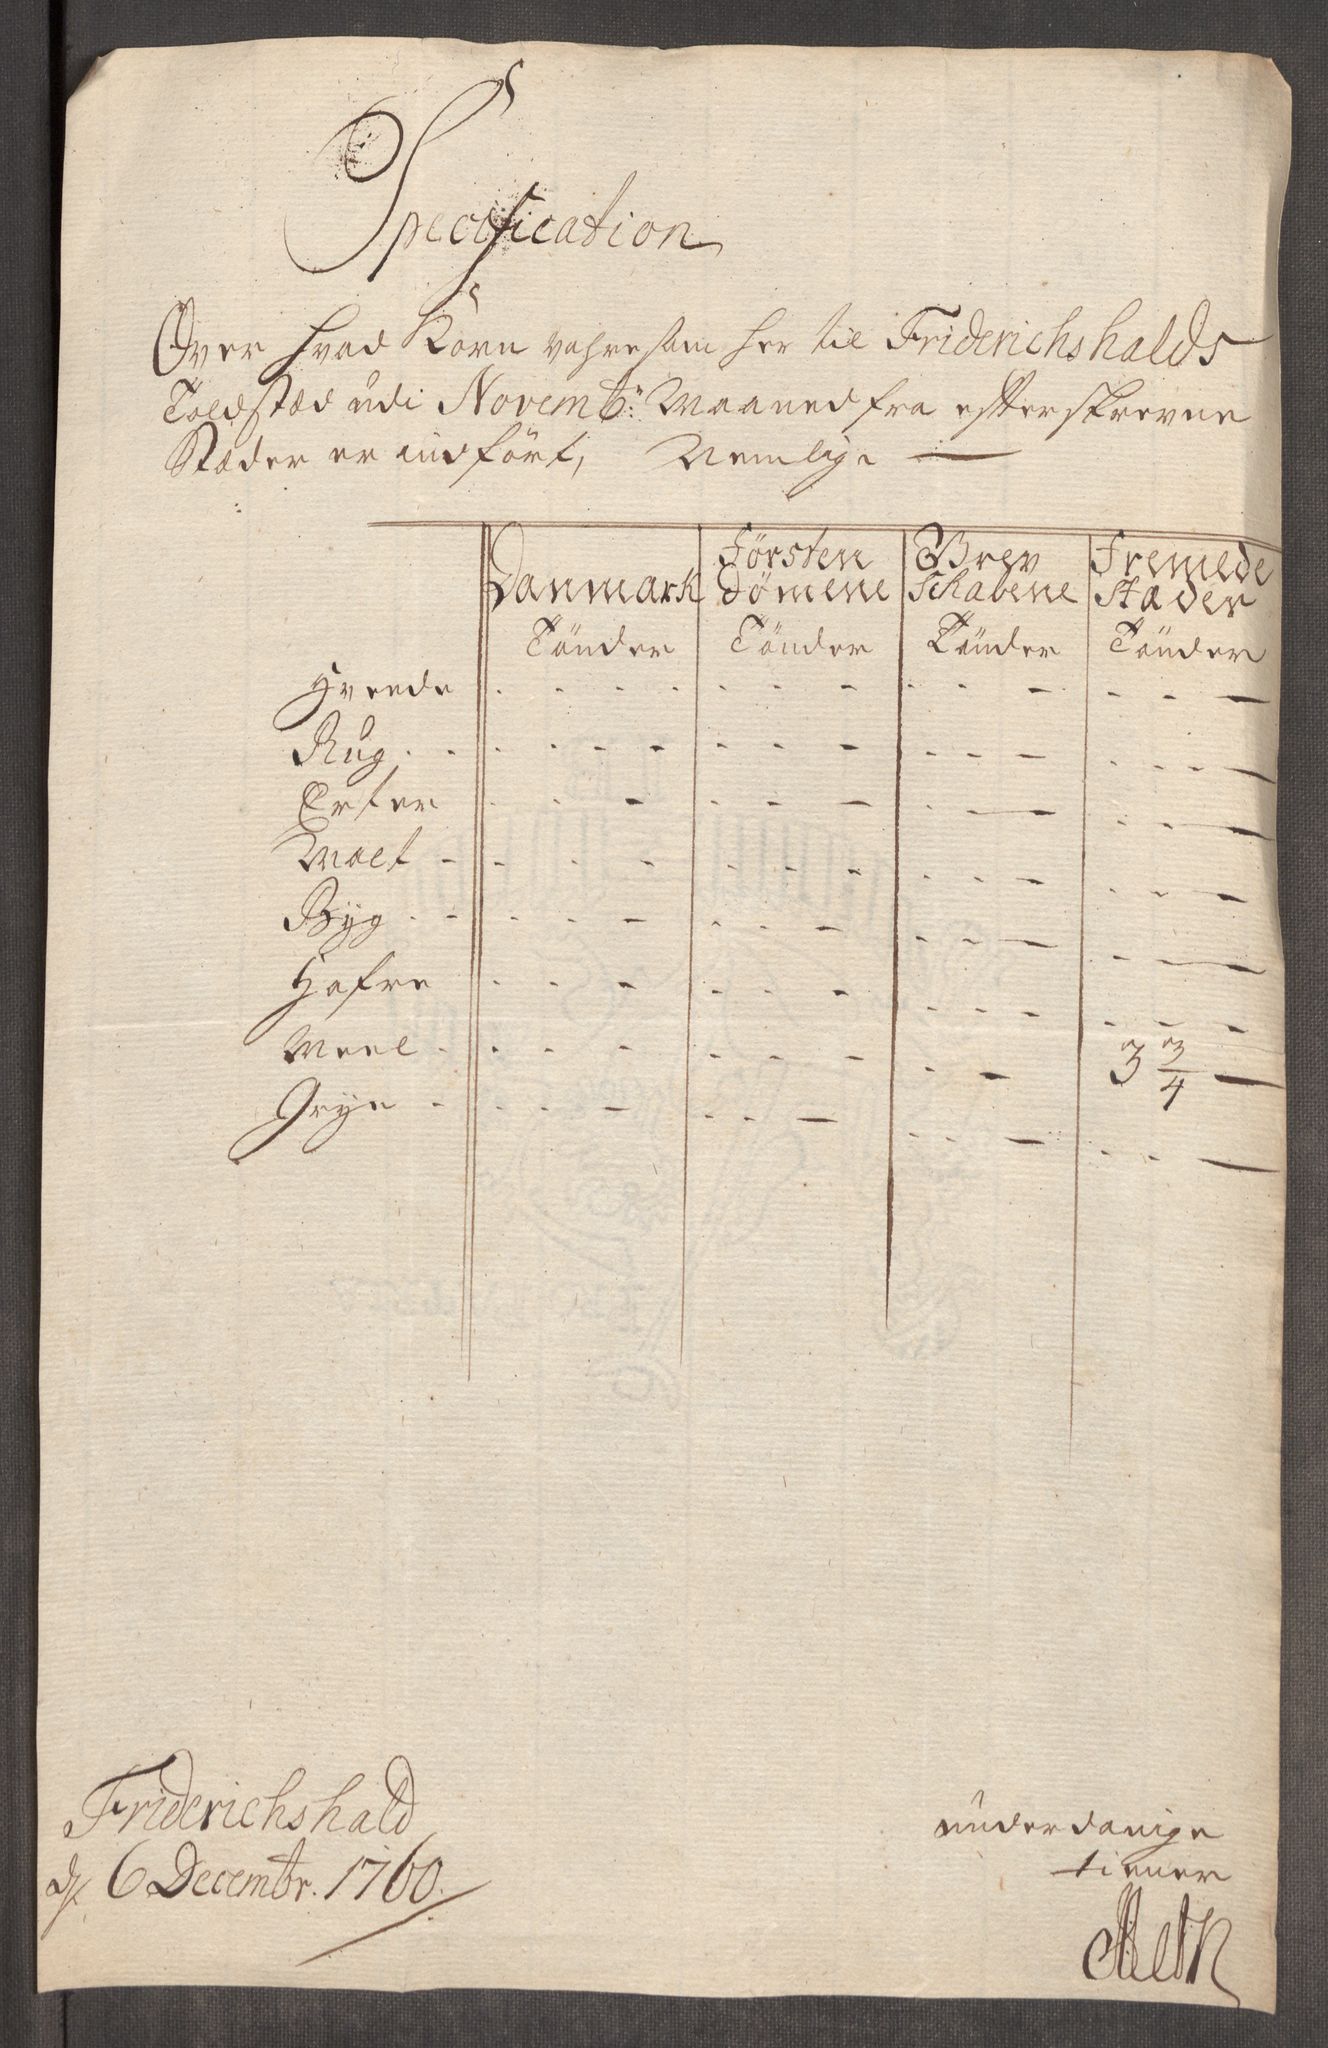 Specification
Over hvad Korn vahre som her til Friderichshalds
Toldstæd udi Novembr: Maaned fra efterskrevne
Stæder er indført, Nemlige —
Danmark Førsten dømene Grev schabene Fremede stæder
Tønder Tønder Tønder Tønder
Hveede . . . . . . - . . - . . —
Rug . . . . - - . . - . . - . . . —
Erter . . - . . — . - — . . - —
Malt - . . - . . . - . . - . . - —
Byg . - . . - . . - . . — . . - —
Hafre . . - . . - . . - . . - -
Meel . . . - . . . - . - 3 3/4 —
Gryn . . . - . . — . . — . . —
Friderichshald
d. 6 Decembr. 1760.
underdanige
tiener